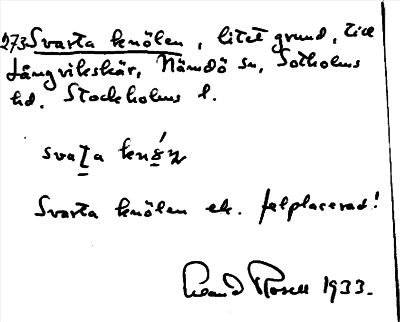 273 Svarta knölen, litet grund, till
Långvikskär, Nämdö sn, Sotholms
hd. Stockholms l.
svaṯa knö́ṉ
Svarta knölen ek. felplacerad!
1933.